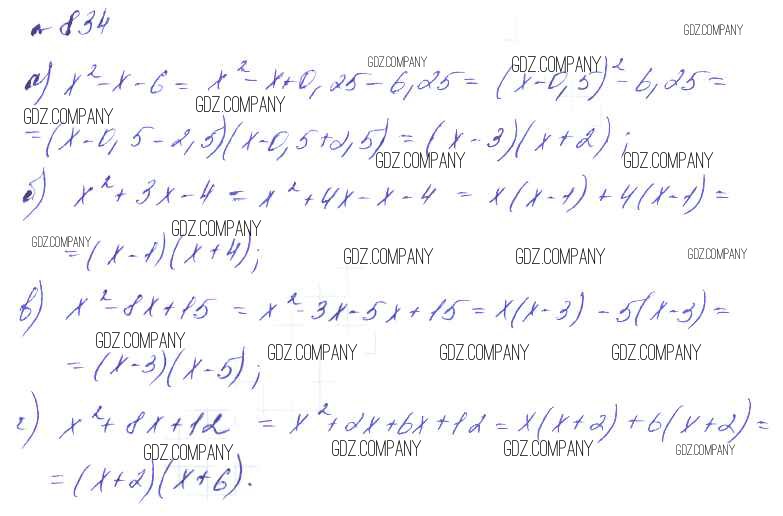 № 834
GDZ.COMPANY
а) x² - x - 6 = x² - x + 0,25 - 6,25 = (x - 0,5)² - 6,25 =
GDZ.COMPANY GDZ.COMPANY GDZ.COMPANY GDZ.COMPANY
= (x - 0,5 - 2,5)(x - 0,5 + 2,5) = (x - 3)(x + 2);
GDZ.COMPANY GDZ.COMPANY
б) x² + 3x - 4 = x² + 4x - x - 4 = x(x - 1) + 4(x - 1) =
GDZ.COMPANY
= (x - 1)(x + 4);
GDZ.COMPANY GDZ.COMPANY GDZ.COMPANY GDZ.COMPANY
в) x² - 8x + 15 = x² - 3x - 5x + 15 = x(x - 3) - 5(x - 3) =
GDZ.COMPANY GDZ.COMPANY GDZ.COMPANY GDZ.COMPANY
= (x - 3)(x - 5);
г) x² + 8x + 12 = x² + 2x + 6x + 12 = x(x + 2) + 6(x + 2) =
GDZ.COMPANY GDZ.COMPANY GDZ.COMPANY GDZ.COMPANY
= (x + 2)(x + 6).